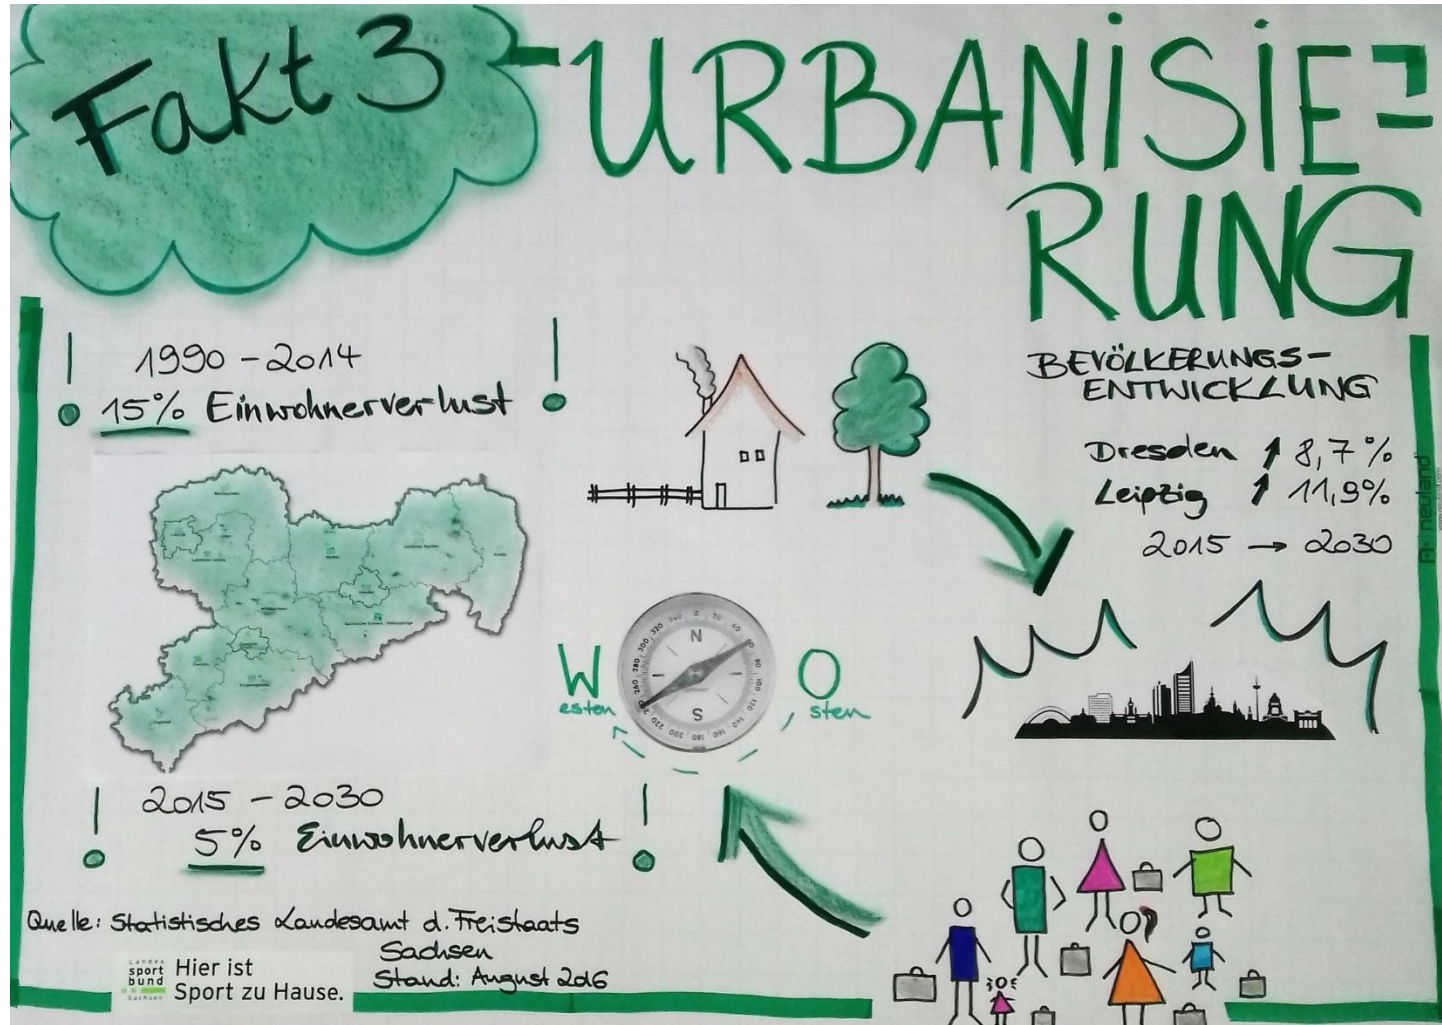 Fakt 3
URBANiSiE-
RUNG
1990 – 2014
15% Einwohnerverlust
BEVÖLKERUNGS-
ENTWICKLUNG
Dresden 8,7%
Leipzig 11,9%
2015 → 2030
neuland
N
S
W
esten
O
sten
2015 – 2030
5% Einwohnerverlust
Quelle: Statistisches Landesamt d. Freistaats
Sachsen
Stand: August 2016
Landes
sport
bund
Sachsen
Hier ist
Sport zu Hause.